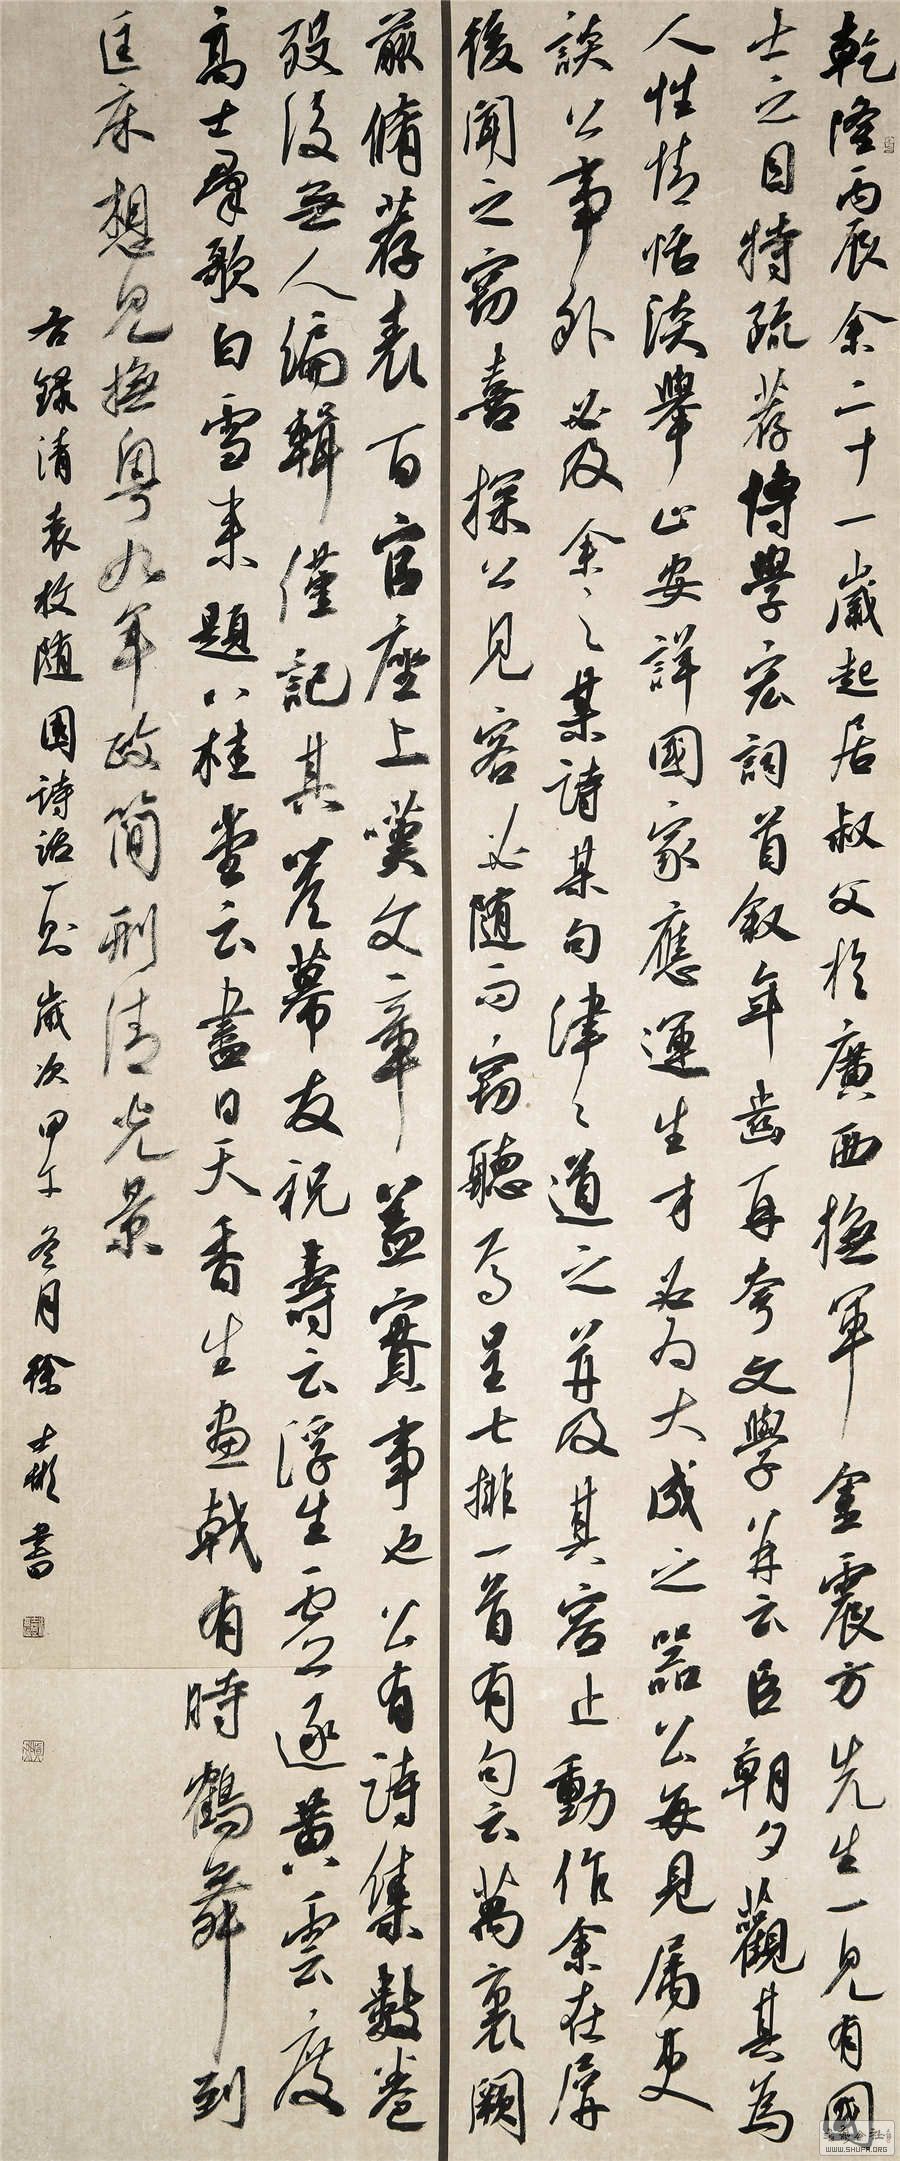 乾隆丙辰余二十一歲起居叔父於廣西撫軍金震方先生一見有國
士之目特疏荐博學宏詞首敘年齒再夸文學并云臣朝夕觀其為
人性情恬淡舉止安詳國家應運生才必為大成之器公每見屬吏
談公事外必及余之某詩某句津津道之并及其容止動作余在屏
後聞之竊喜探公見客必隨而竊聽焉呈七排一首有句云萬裏闕
前脩荐表百官座上嘆文章蓋實事也公有詩集數卷
歿後無人編輯僅記其答幕友祝壽云浮生虛逐黃雲度
高士群歌白雪來題八桂堂云盡日天香生畫戟有時鶴舞到
匡床想見撫粵九年政簡刑清光景
右錄清袁枚随園詩話一則歲次甲午冬月徐士彬書
WWW.SHUFA.ORG